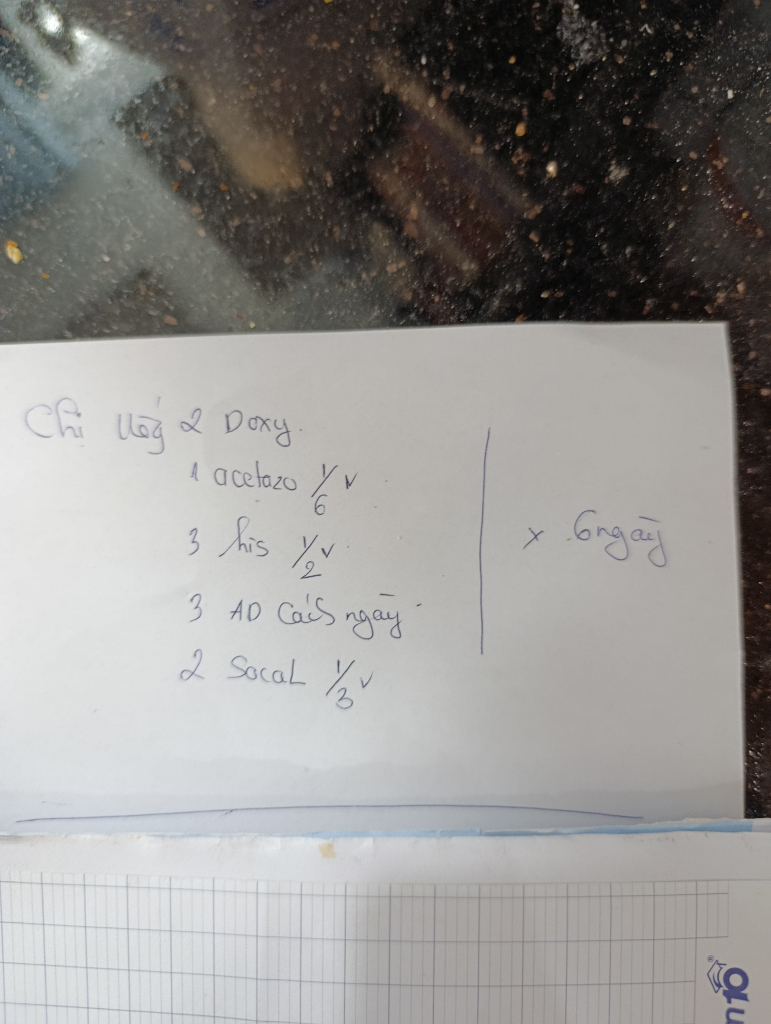 Chi Uống 2 Doxy.
1 acetazo 1/6 v
3 his 1/2 v
3 AD Cách ngày
2 Socal 1/3 v
x 6 ngày